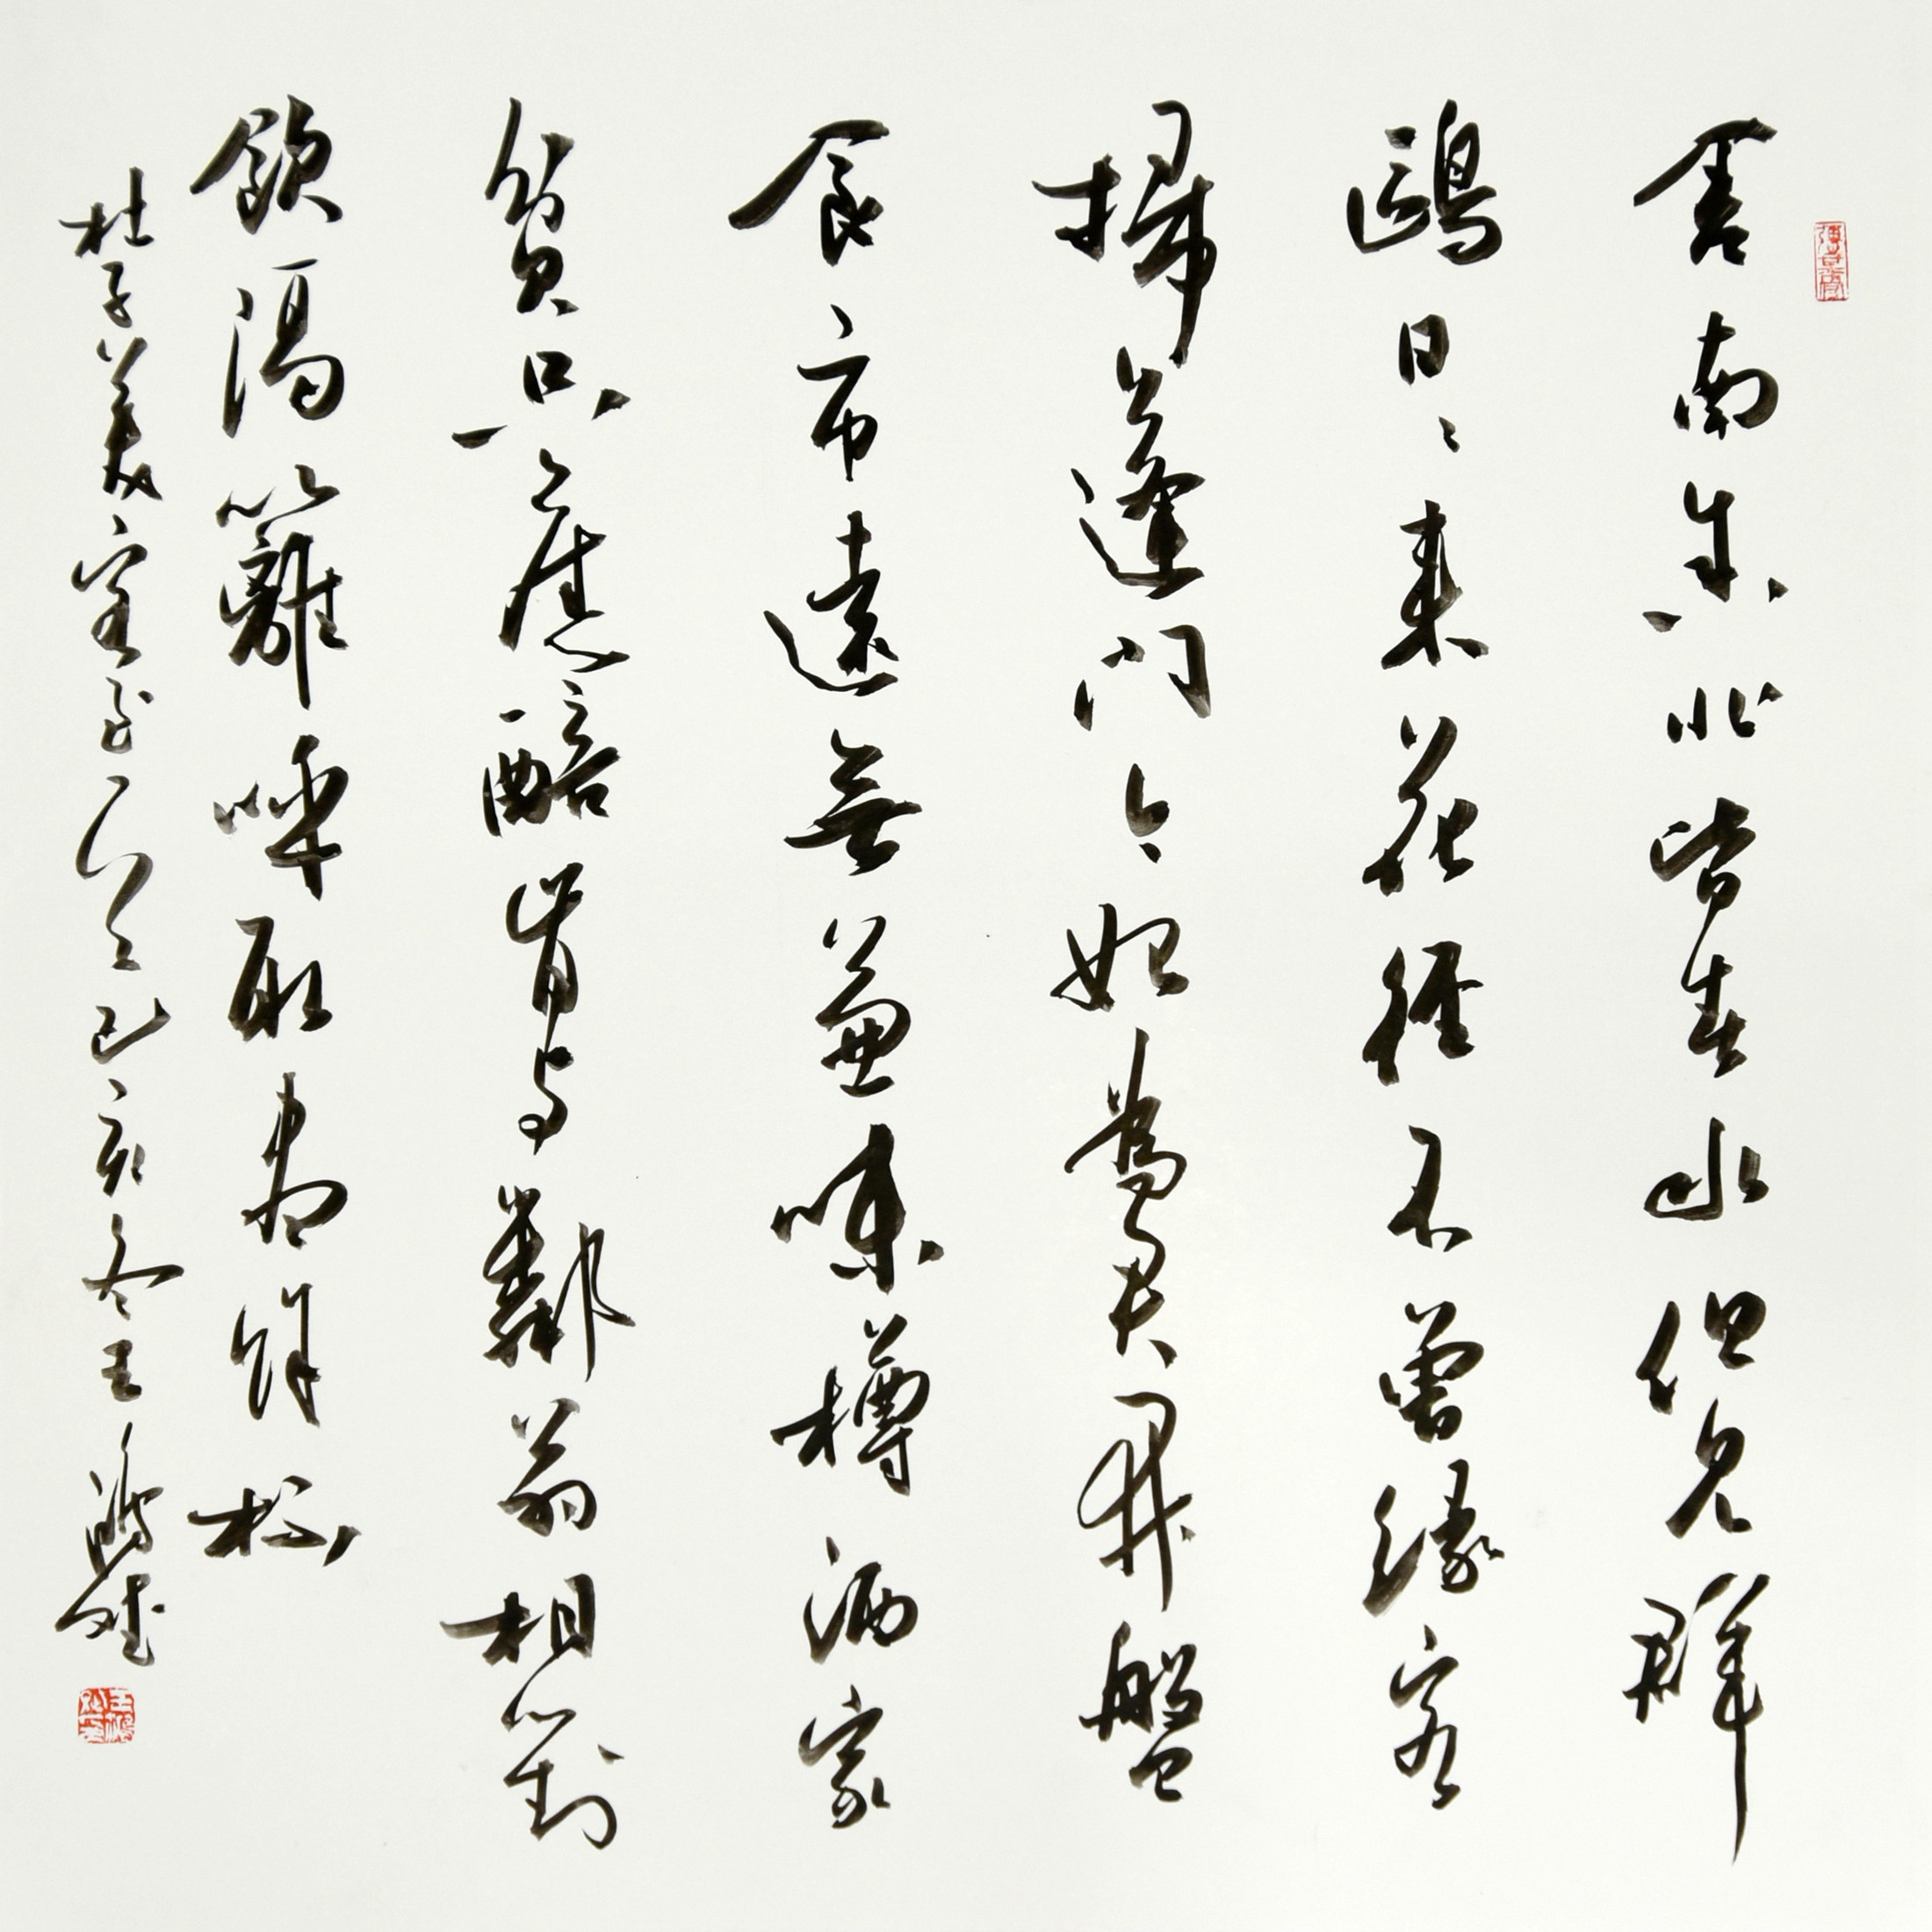 舍南舍北皆春水但見群
鷗日〻來花徑不曾緣客
掃蓬門今始為君開盤
食市遠無兼味樽酒家
貧只舊醅肯與鄰翁相對
飲隔籬呼取盡餘杯
杜子美客至一首己亥冬王鴻